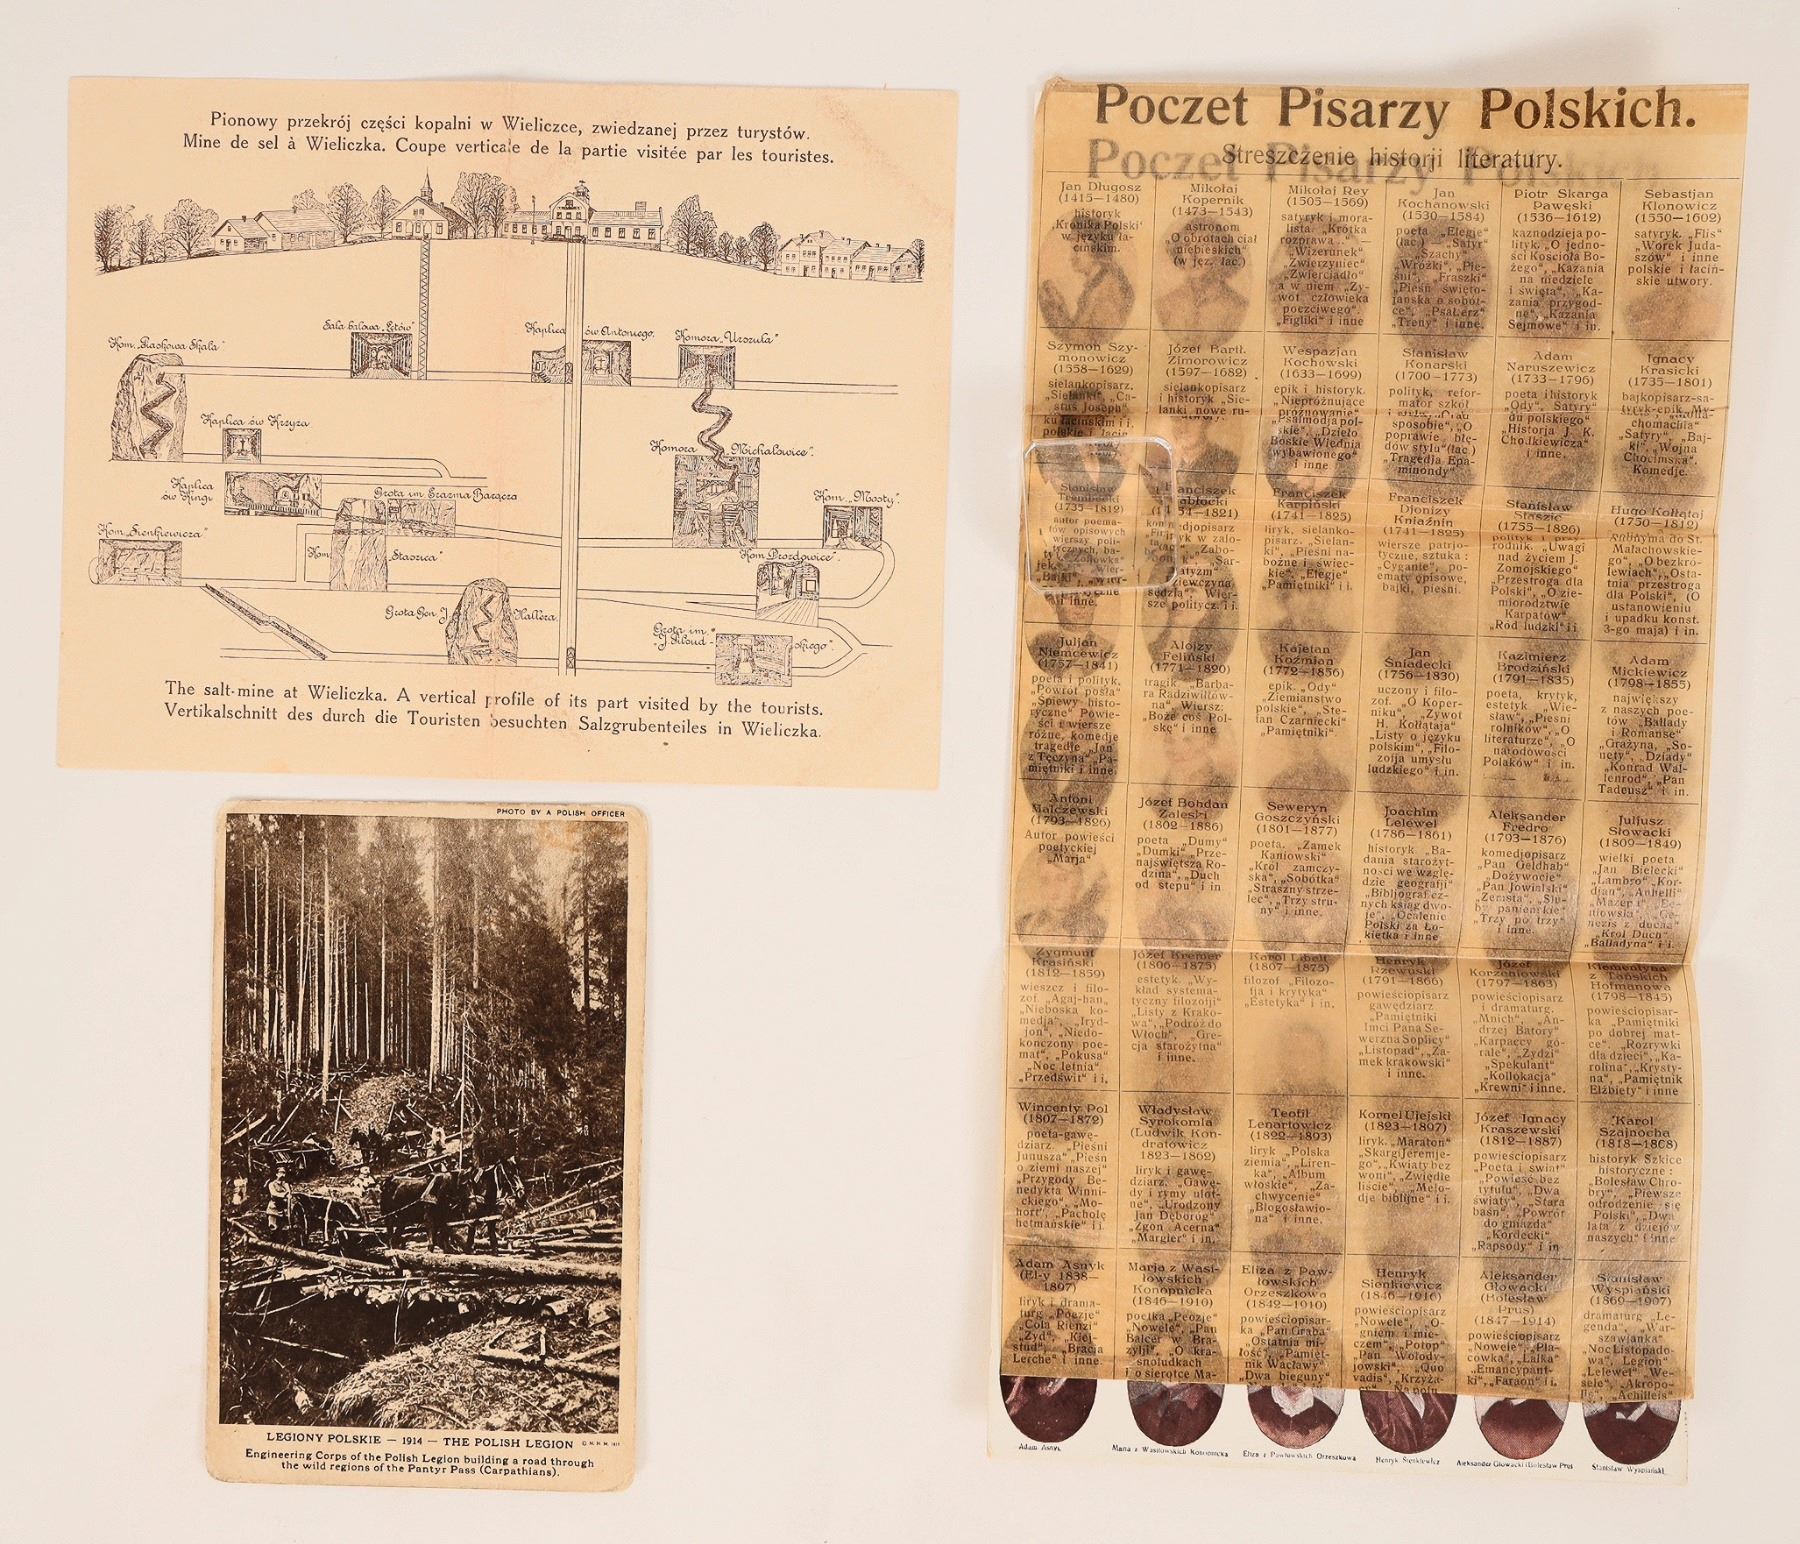 Pionowy przekrój części kopalni w Wieliczce, zwiedzanej przez turystów.
Mine de sel à Wieliczka. Coupe verticale de la partie visitée par les touristes.
Sala balowa „Łętów"
Kaplica św Antoniego.
Komora „Urszula"
Kom. „Piaskowa Skała"
Kaplica św Krzyża
Komora „Michałowice".
Kaplica św Kingi
Grota im Erazma Barącza
Kom. „Mosty"
Kom „Sienkiewicza"
Kom. Staszica"
Kom Drozdowice"
Grota Gen J. Hallera
Grota im. „J Piłsudskiego".
The salt-mine at Wieliczka. A vertical profile of its part visited by the tourists.
Vertikalschnitt des durch die Touristen besuchten Salzgrubenteiles in Wieliczka.
PHOTO BY A POLISH OFFICER
LEGIONY POLSKIE — 1914 — THE POLISH LEGION
Engineering Corps of the Polish Legion building a road through
the wild regions of the Pantyr Pass (Carpathians).
Poczet Pisarzy Polskich.
Poczet Pisarzy Polskich
Streszczenie historji literatury.
Jan Długosz
(1415—1480)
historyk
„Kronika Polski"
w języku ła-
cińskim.
Mikołaj
Kopernik
(1473—1543)
astronom
„O obrotach ciał
niebieskich"
(w jęz. łac.)
Mikołaj Rey
(1505—1569)
satyryk i mora-
lista. „Krótka
rozprawa..." —
„Wizerunek"
„Zwierzyniec"
„Zwierciadło"
a w niem „Ży-
wot człowieka
poczciwego".
„Figliki" i inne
Jan
Kochanowski
(1530—1584)
poeta „Elegje"
(łac.) „Satyr"
„Szachy"
„Wróżki", „Pie-
śni", „Fraszki"
„Pieśń święto-
jańska o sobót-
ce", „Psałterz"
„Treny" i inne.
Piotr Skarga
Pawęski
(1536—1612)
kaznodzieja po-
lityk. „O jedno-
ści Kościoła Bo-
żego", „Kazania
na niedziele
i święta", „Ka-
zania przygod-
ne", „Kazania
Sejmowe" i in.
Sebastjan
Klonowicz
(1550—1602)
satyryk. „Flis"
„Worek Juda-
szów" i inne
polskie i łaciń-
skie utwory.
Szymon Szy-
monowicz
(1558—1629)
sielankopisarz.
„Sielanki", „Ca-
stus Joseph"
Józef Bartł.
Zimorowicz
(1597—1682)
sielankopisarz
i historyk „Sie-
lanki nowe ru-
Wespazjan
Kochowski
(1633—1699)
epik i historyk.
„Niepróżnujące
próżnowanie"
„Psalmodja pol-
skie", „Dzieło
Boskie Wiednia
wybawionego"
i inne
Stanisław
Konarski
(1700—1773)
polityk, refor-
mator szkół
sposobie", „O
poprawie błę-
dów stylu" (łac)
„Tragedja Epa-
minondy"
Adam
Naruszewicz
(1733—1796)
poeta i historyk
„Ody" „Satyry"
„Historja J. K.
Chodkiewicza"
i inne.
Ignacy
Krasicki
(1735—1801)
bajkopisarz-sa-
tyryk-epik „My-
chomachia"
„Satyry", „Baj-
ki" „Wojna
Chocimska".
Komedje.
Stanisław
Trembecki
(1735—1812)
autor poema-
tów opisowych
wierszy poli-
tycznych, ba-
Franciszek
Karpiński
(1741—1825)
liryk, sielanko-
pisarz. „Sielan-
ki", „Pieśni na-
bożne i świec-
kie", „Elegje"
„Pamiętniki" i i.
Franciszek
Djonizy
Kniaźnin
(1741—1825)
wiersze patrjo-
tyczne, sztuka:
„Cyganie", po-
ematy opisowe,
bajki, pieśni.
Stanisław
Staszic
(1755—1826)
polityk i przy-
rodnik. „Uwagi
nad życiem J.
Zomojskiego"
„Przestroga dla
Polski", „O zie-
miorodztwie
Karpatów"
„Ród ludzki" i i
Hugo Kołłątaj
(1750—1812)
Anonyma do St.
Małachowskie-
go", „O bezkró-
lewiach", „Osta-
tnia przestroga
dla Polski", (O
ustanowieniu
i upadku konst.
3-go maja) i in.
Juljan
Niemcewicz
(1757—1841)
poeta i polityk.
„Powrót posła"
„Śpiewy histo-
ryczne" Powie-
ści i wiersze
różne, komedje
tragedje „Jan
z Tęczyna" „Pa-
miętniki i inne.
Alojzy
Feliński
(1771—1820)
tragik „Barba-
ra Radziwiłłów-
na", Wiersz:
„Boże coś Pol-
skę" i inne
Kajetan
Koźmian
(1772—1856)
epik. „Ody"
„Ziemiaństwo
polskie", „Ste-
fan Czarniecki"
„Pamiętniki".
Jan
Śniadecki
(1756—1830)
uczony i filo-
zof. „O Koper-
niku", „Żywot
H. Kołłątaja"
„Listy o języku
polskim", „Filo-
zofja umysłu
ludzkiego" i in.
Kazimierz
Brodziński
(1791—1835)
poeta, krytyk,
estetyk „Wie-
sław", „Pieśni
rolników", „O
literaturze", „O
narodowości
Polaków" i in.
Adam
Mickiewicz
(1798—1855)
największy
z naszych poe-
tów „Ballady
i Romanse"
„Grażyna, „So-
nety", „Dziady"
„Konrad Wal-
lenrod", „Pan
Tadeusz" i in.
Antoni
Malczewski
(1793—1826)
Autor powieści
poetyckiej
„Marja"
Józef Bohdan
Zaleski
(1802—1886)
poeta „Dumy"
„Dumki" „Prze-
najświętsza Ro-
dzina", „Duch
od stepu" i in
Seweryn
Goszczyński
(1801—1877)
poeta. „Zamek
Kaniowski"
„Król zamczy-
ska", „Sobótka"
„Straszny strze-
lec", „Trzy stru-
ny" i inne.
Joachim
Lelewel
(1786—1861)
historyk „Ba-
dania starożyt-
ności we wzglę-
dzie geografji"
„Bibljograficz-
nych ksiąg dwo-
je", „Ocalenie
Polski za Ło-
kietka i inne
Aleksander
Fredro
(1793—1876)
komedjopisarz
„Pan Geldhab"
„Dożywocie"
„Pan Jowialski"
„Zemsta", „Ślu-
by panieńskie"
„Trzy po trzy"
i inne.
Juljusz
Słowacki
(1809—1849)
wielki poeta
„Jan Bielecki"
„Lambro" „Kor-
djan", „Anhelli"
„Król Duch"
„Balladyna" i i.
Zygmunt
Krasiński
(1812—1859)
wieszcz i filo-
zof. „Agaj-han„
„Nieboska ko-
medja", „Iryd-
jon", „Niedo-
kończony poe-
mat", „Pokusa"
„Noc letnia"
„Przedświt" i i.
Józef Kremer
(1806—1875)
estetyk. „Wy-
kład systema-
tyczny filozofji"
„Listy z Krako-
wa", „Podróż do
Włoch", „Gre-
cja starożytna"
i inne.
Karol Libelt
(1807—1875)
filozof „Filozo-
fja i krytyka"
„Estetyka" i in.
Henryk
Rzewuski
(1791—1866)
powieściopisarz
gawędziarz
„Pamiętniki
Imci Pana Se-
weryna Soplicy"
„Listopad", „Za-
mek krakowski"
i inne.
Józef
Korzeniowski
(1797—1863)
powieściopisarz
i dramaturg.
„Mnich", „An-
drzej Batory"
„Karpaccy gó-
rale", „Żydzi"
„Spekulant"
„Kollokacja"
„Krewni" i inne.
Klementyna
z Tańskich
Hofmanowa
(1798—1845)
powieściopisar-
ka „Pamiętniki
po dobrej mat-
ce". „Rozrywki
dla dzieci", „Ka-
rolina", „Krysty-
na", „Pamiętnik
Elżbiety" i inne
Wincenty Pol
(1807—1872)
poeta-gawę-
dziarz. „Pieśni
Junusza" „Pieśń
o ziemi naszej"
„Przygody Be-
nedykta Winni-
ckiego", „Mo-
hort", „Pacholę
hetmańskie" i i.
Władysław
Syrokomla
(Ludwik Kon-
dratowicz
1823—1862)
liryk i gawę-
dziarz. „Gawę-
dy i rymy ulot-
ne", „Urodzony
Jan Dęboróg"
„Zgon Acerna"
„Margier" i in.
Teofil
Lenartowicz
(1822—1893)
liryk „Polska
ziemia", „Liren-
ka", „Album
włoskie", „Za-
chwycenie"
„Błogosławio-
na" i inne.
Kornel Ujejski
(1823—1897)
liryk. „Maraton"
„Skargi Jeremje-
go", „Kwiaty bez
woni", „Zwiędłe
liście", „Melo-
dje biblijne" i i.
Józef Ignacy
Kraszewski
(1812—1887)
powieściopisarz
„Poeta i świat"
„Powieść bez
tytułu", „Dwa
światy", „Stara
baśń", „Powrót
do gniazda"
„Kordecki"
„Rapsody" i in
Karol
Szajnocha
(1818—1868)
historyk Szkice
historyczne:
„Bolesław Chro-
bry", „Pierwsze
odrodzenie się
Polski", „Dwa
lata z dziejów
naszych" i inne
Adam Asnyk
(El-y 1838—
1897)
liryk i drama-
turg „Poezje"
„Cola Rienzi"
„Żyd", „Kiej-
stud", „Bracia
Lerche" i inne.
Marja z Wasi-
łowskich
Konopnicka
(1846—1910)
poetka „Peozje"
„Nowele", „Pan
Balcer w Bra-
zylji", „O kra-
snoludkach
i o sierotce Ma-
Eliza z Paw-
łowskich
Orzeszkowa
(1842—1910)
powieściopisar-
ka „Pan Graba"
„Ostatnia mi-
łość", „Pamięt-
nik Wacławy"
„Dwa bieguny"
Henryk
Sienkiewicz
(1846—1916)
powieściopisarz
„Nowele", „O-
gniem i mie-
czem", „Potop"
„Pan Wołody-
jowski", „Quo
vadis", „Krzyża-
Aleksander
Głowacki
(Bolesław
Prus)
(1847—1914)
powieściopisarz
„Nowele", „Pla-
cówka", „Lalka"
„Emancypant-
ki", „Faraon" i i.
Stanisław
Wyspiański
(1869—1907)
dramaturg „Le-
genda", „War-
szawianka"
„Noc Listopado-
wa", „Legion"
„Lelewel" „We-
sele", „Akropo-
lis", „Achilleis"
Adam Asnyk
Maria z Wasiłowskich Konopnicka
Eliza z Pawłowskich Orzeszkowa
Henryk Sienkiewicz
Aleksander Głowacki (Bolesław Prus)
Stanisław Wyspiański